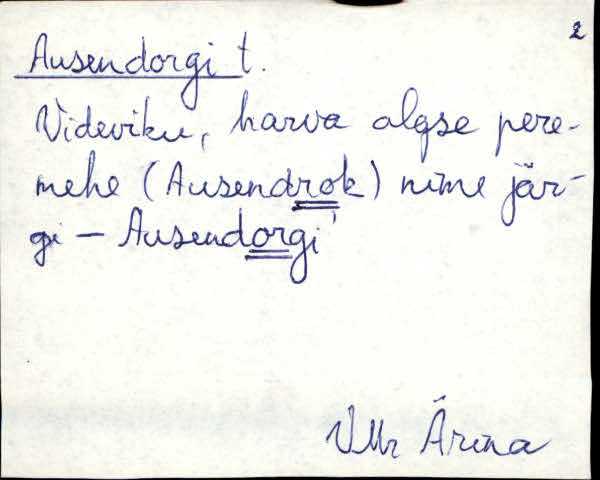 2
Ausendorgi t.
Videviku, harva algse pere-
mehe (Ausendrok) nime jär-
gi – Ausendorgi'
VMr Ärina